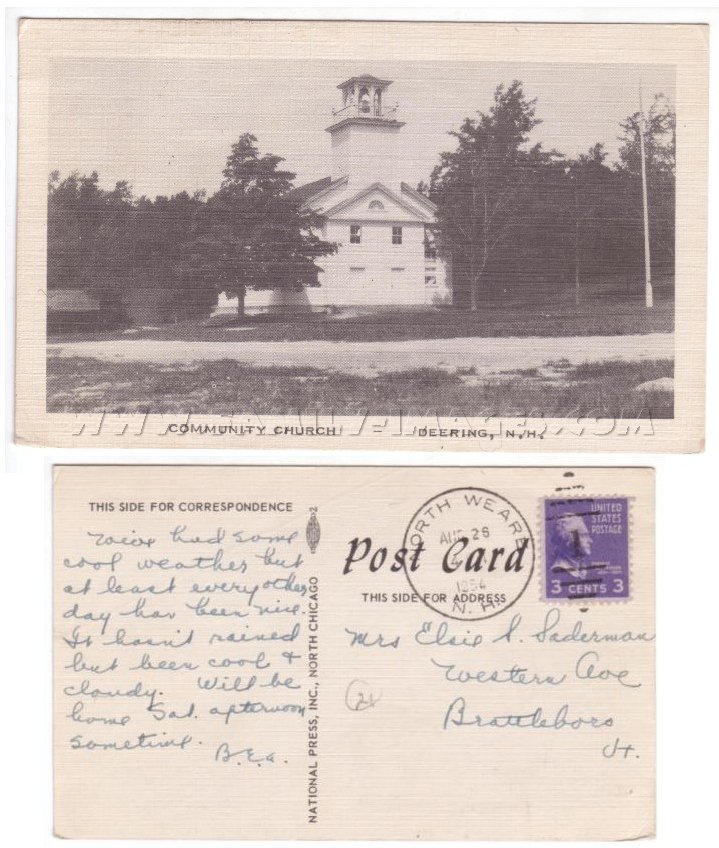 WWW.FAMILY-IMAGES.COM
COMMUNITY CHURCH DEERING, N.H.
THIS SIDE FOR CORRESPONDENCE
We've had some
cool weather but
at least every other
day has been nice.
It hasn't rained
but been cool &
cloudy. Will be
home Sat. afternoon
sometime.
B.E.G.
NATIONAL PRESS, INC., NORTH CHICAGO
2
Post Card
THIS SIDE FOR ADDRESS
NORTH WEARE
AUG 26
1954
N. H.
UNITED
STATES
POSTAGE
3 CENTS 3
Mrs Elsie S. Saderman
Western Ave
Brattleboro
Vt.
21